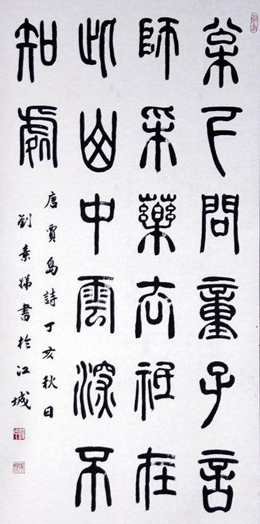 松下問童子言
師采藥去祇在
此山中雲深不
知處
唐賈島詩丁亥秋日
劉素書於江城